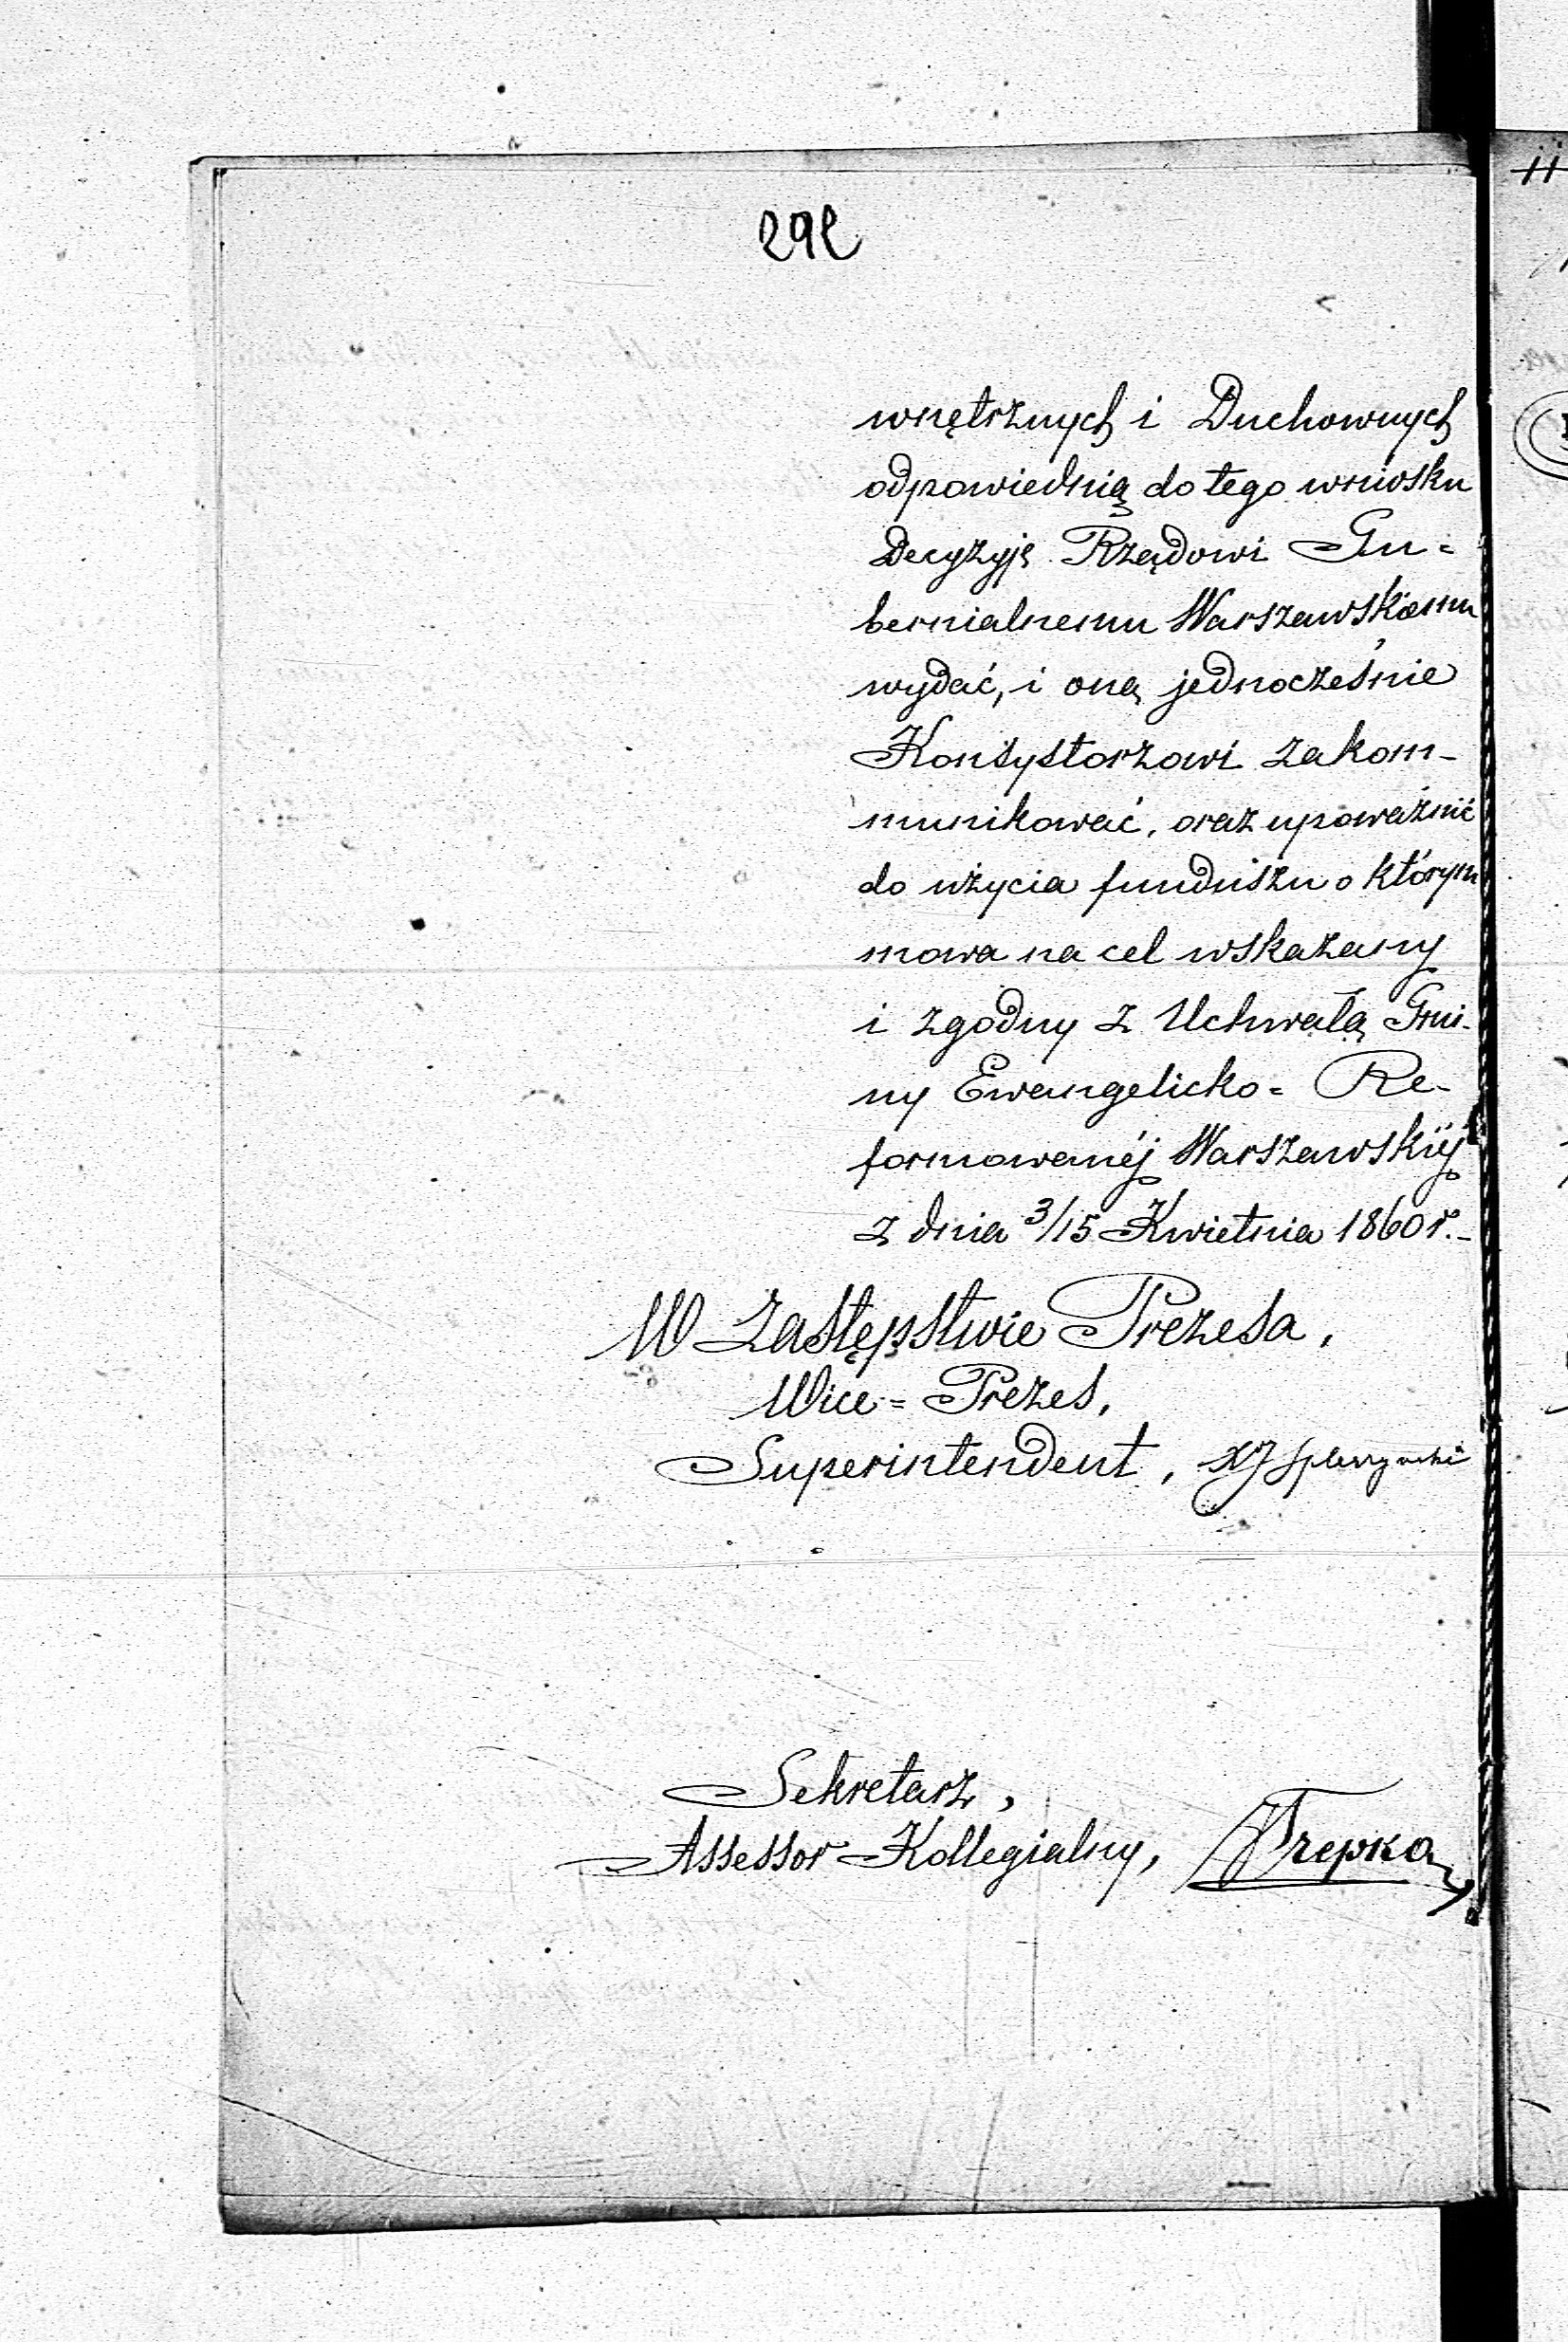 292
wnętrznych i Duchownych
odpowiednią do tego wniosku
Decyzyję Rządowi Gu=
bernialnemu Warszawskiemu
wydać, i oną jednocześnie
Konsystorzowi zakom-
munikować, oraz upoważnić
do użycia funduszu o którym
mowa na cel wskazany
i zgodny z Uchwałą Gmi-
ny Ewangelicko= Re-
formowanéj Warszawskiéj
z dnia 3/15 Kwietnia 1860 r.-
W Zastępstwie Prezesa,
Wice=Prezes,
Superintendent, XJ Spleszynski
Sekretarz,
Assessor Kollegialny, Trepka